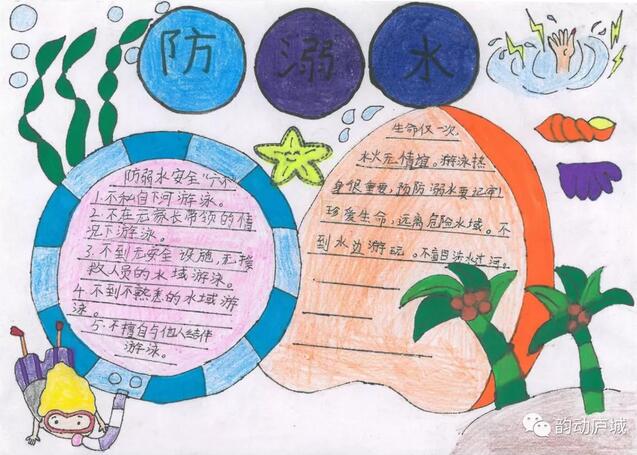 防溺水
防弱水安全"六不"
1.不私自下河游泳。
2.不在无家长带领的情
况下游泳。
3.不到无安全设施,无救
救人员的水域游泳。
4.不到不熟悉的水域游
泳。
5.不擅自与他人结伴
游泳。
生命仅一次.
水火无情
游泳热
身很重要,预防溺水要记牢
珍爱生命,远离危险水域。不
到水边游玩。不盲目涉水过河。
韵动庐城